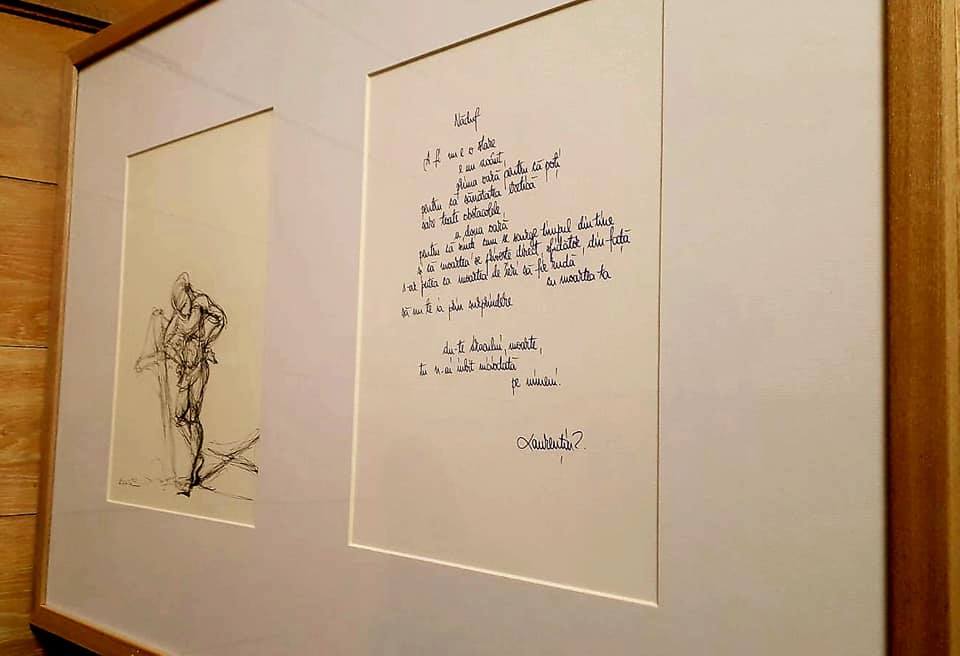 Năduf
A fi nu e o stare
e un noimt,
prima oară pentru că poți
pentru că sănătatea
sare toate obstacolele,
a doua oară
pentru că simți cum se scurge timpul din tine
și că moartea se privește direct, sfidător, din față
s-ar putea ca moartea de ieri să fie rudă
cu moartea ta
să nu te ia prin surprindere
du-te dracului, moarte,
tu n-ai iubit niciodată
pe nimeni.
Laurențiu